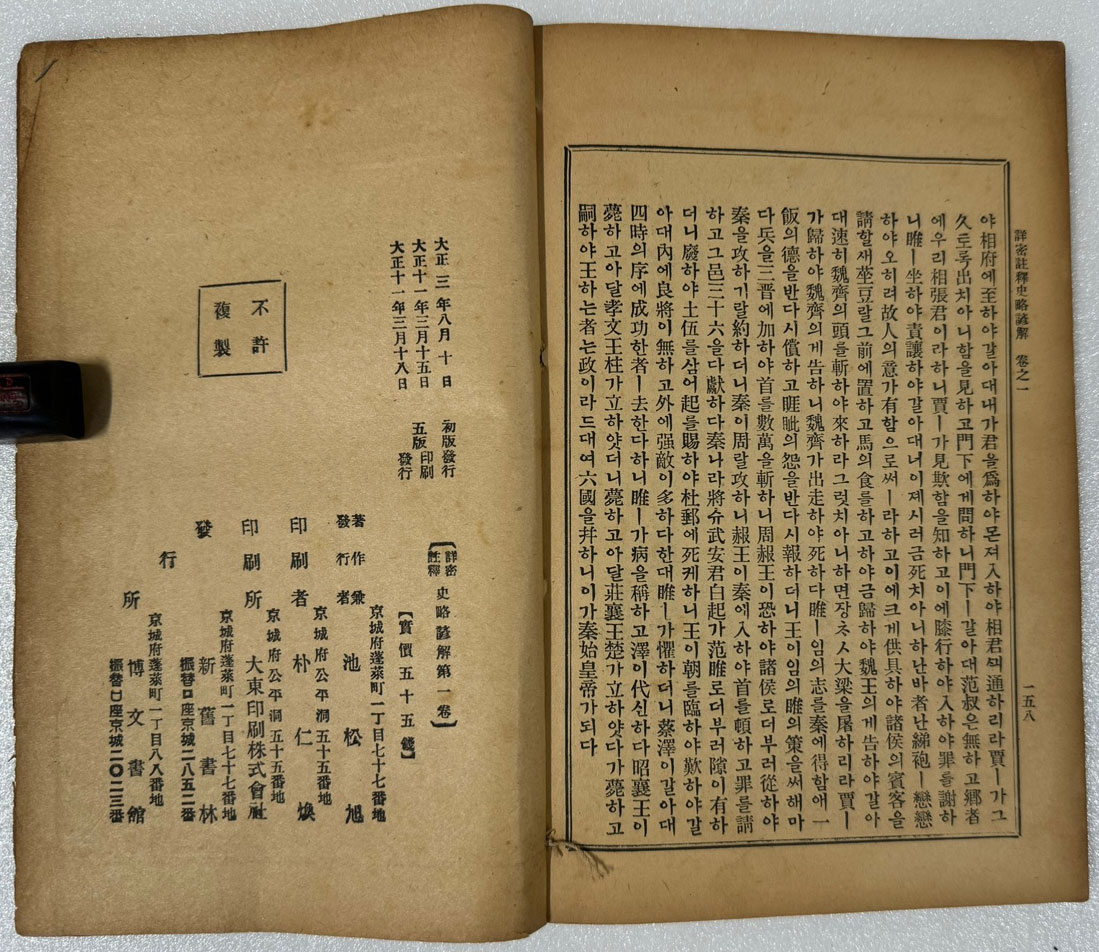 詳密註釋史略諺解 卷之一
一五八
야相府에至하야갈아대내가君을爲하야몬져入하야相君의通하리라賈ㅣ가그
久토록出치아니함을見하고門下에게問하니門下ㅣ갈아대范叔은無하고鄕者
에우리相張君이라하니賈ㅣ가見欺함을知하고이에膝行하야入하야罪를謝하
니睢ㅣ坐하야責讓하야갈아대너이졔시러금死치아니하난바者난綈袍ㅣ戀戀
하야오히려故人의意가有함으로써ㅣ라하고이에크게供具하야諸侯의賓客을
請할새莝豆랄그前에置하고馬의食를하고하야금歸하야魏王의게告하야갈아
대速히魏齊의頭를斬하야來하라그럿치아니하면장ᄎᆞᆺ大梁을屠하리라賈ㅣ
가歸하야魏齊의게告하니魏齊가出走하야死하다睢ㅣ임의志를秦에得함애一
飯의德을반다시償하고睚眦의怨을반다시報하더니王이임의睢의策을써해마
다兵을三晋에加하야首를數萬을斬하니周赧王이恐하야諸侯로더부러從하야
秦을攻하기랄約하더니秦이周랄攻하니赧王이秦애入하야首를頓하고罪를請
하고그邑三十六을다獻하다秦나라將슈武安君白起가范睢로더부러隙이有하
더니廢하야土伍를삼어起를賜하야杜郵에死케하니王이朝를臨하야歎하야갈
아대內에良將이無하고外에强敵이多하다한대睢ㅣ가懼하더니蔡澤이갈아대
四時의序에成功한者ㅣ去한다하니睢ㅣ가病을稱하고澤이代신하다昭襄王이
薨하고아달孝文王柱가立하얏더니薨하고아달莊襄王楚가立하얏다가薨하고
嗣하야王하는者는政이라드대여六國을幷하니이가秦始皇帝가되다
大正三年八月十日 初版發行
大正十一年三月十五日 五版印刷
大正十一年三月十八日 發行
不許
複製
【詳密註釋 史略諺解第一卷】
【實價五十五錢】
京城府蓬萊町一丁目七十七番地
著作兼發行者 池松旭
京城府公平洞五十五番地
印刷者 朴仁煥
京城府公平洞五十五番地
印刷所 大東印刷株式會社
京城府蓬萊町一丁目七十七番地
發行所 新舊書林
振替口座京城二八五二番
京城府蓬萊町一丁目八八番地
博文書館
振替口座京城二〇二三番